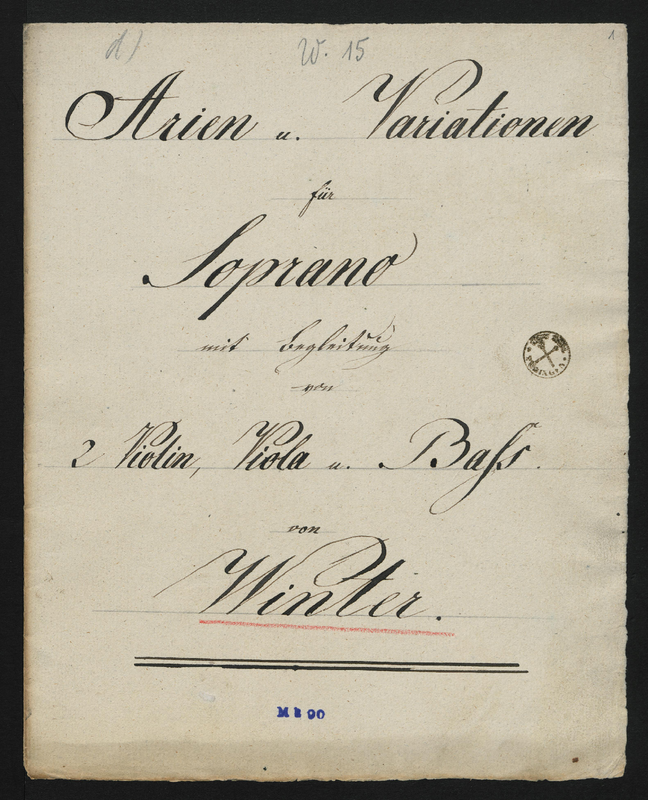 d)
W. 15
1
Arien u. Variationen
für
Soprano
mit Begleitung
von
2 Violin, Viola u. Bass.
von
Winter.